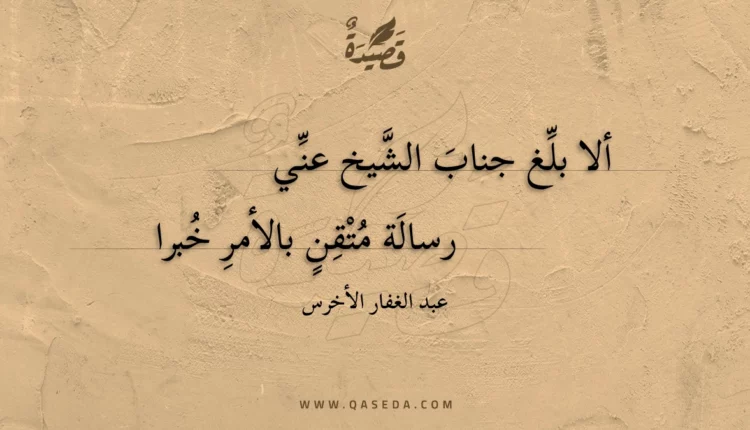 قَصِيْدَةٌ
ألا بلِّغ جنابَ الشَّيخ عنِّي
رسالَة مُتْقِنٍ بالأمرِ خُبرا
عبد الغفار الأخرس
WWW.QASEDA.COM